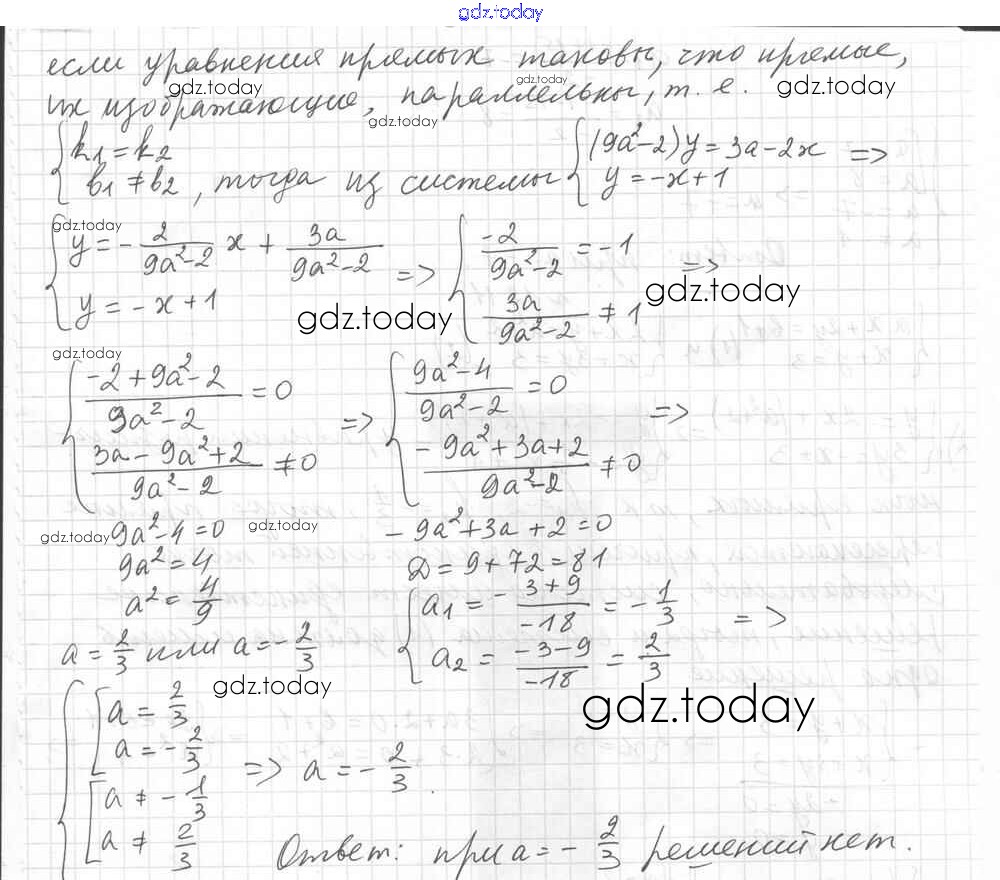 gdz.today
если уравнения прямых таковы, что прямые,
gdz.today gdz.today gdz.today
их изображающие, параллельны, т. е.
gdz.today
{ k1 = k2
b1 ≠ b2, тогда из системы { (9a²-2)y = 3a - 2x =>
y = -x + 1
gdz.today
{ y = - 2/(9a²-2) x + 3a/(9a²-2)
y = -x + 1 => { -2/(9a²-2) = -1
3a/(9a²-2) ≠ 1 =>
gdz.today gdz.today
gdz.today
{ (-2+9a²-2)/(9a²-2) = 0
(3a-9a²+2)/(9a²-2) ≠ 0 => { (9a²-4)/(9a²-2) = 0
(-9a²+3a+2)/(9a²-2) ≠ 0 =>
gdz.today 9a²-4=0 gdz.today
9a²=4
a²=4/9
a=2/3 или a=-2/3
-9a²+3a+2=0
D=9+72=81
{ a1 = - (3+9)/(-18) = -1/3
a2 = (-3-9)/(-18) = 2/3 =>
gdz.today gdz.today
{ [ a = 2/3
a = -2/3
[ a ≠ -1/3
a ≠ 2/3 => a = -2/3.
Ответ: при a = -2/3 решений нет.